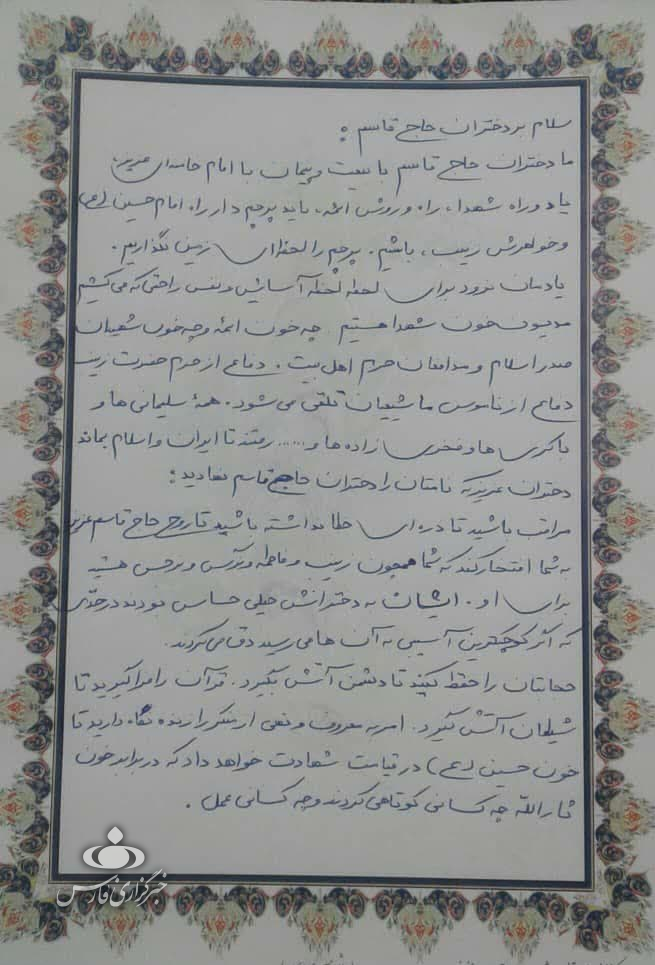 سلام بر دختران حاج قاسم :
ما دختران حاج قاسم با بیعت و پیمان با امام خامنه‌ای عزیز،
یاد و راه شهدا، راه و روش ائمه، باید پرچم دار راه امام حسین (ع)
و خواهرش زینب، باشیم. پرچم را لحظه‌ای زمین نگذاریم.
یادمان نرود برای لحظه لحظه آسایش و نفس راحتی که می کشیم
مدیون خون شهدا هستیم. چه خون ائمه و چه خون شیعیان
صدر اسلام و مدافعان حرم اهل بیت. دفاع از حرم حضرت زینب
دفاع از ناموس ما شیعیان تلقی می شود. همهٔ سلیمانی ها و
باکری ها و فخری زاده ها و..... رفتند تا ایران و اسلام بماند
دختران عزیز که نامتان را دختران حاج قاسم نهادید:
مراقب باشید تا ذره ای خطا نداشته باشید تا روح حاج قاسم عزیز
به شما افتخار کند که شما همچون زینب و فاطمه و نرگس و نرجس هستید
برای او. ایشان به دخترانش خیلی حساس بودند در حدّی
که اگر کوچکترین آسیبی به آن ها می رسید دق می کردند.
حجابتان را حفظ کنید تا دشمن آتش بگیرد. قرآن را فرا گیرید تا
شیطان آتش گیرد. امر به معروف و نهی از منکر را زنده نگاه دارید تا
خون حسین (ع) در قیامت شهادت خواهد داد که در برابر خون
ثارالله چه کسانی کوتاهی کردند و چه کسانی عمل.
خبرگزاری فارس